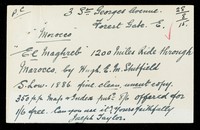 P.C
3 St Georges Avenue.
Forest Gate. E.
"Morocco"
El Maghreb 1200 Miles Ride through
Marocco, by Hugh. E. M. Stutfield
8vo. 1886 fine, clean, uncut copy,
350 pp map & India pub: offered for
1/6 free. Can you use it? Yours faithfully
Joseph Taylor.